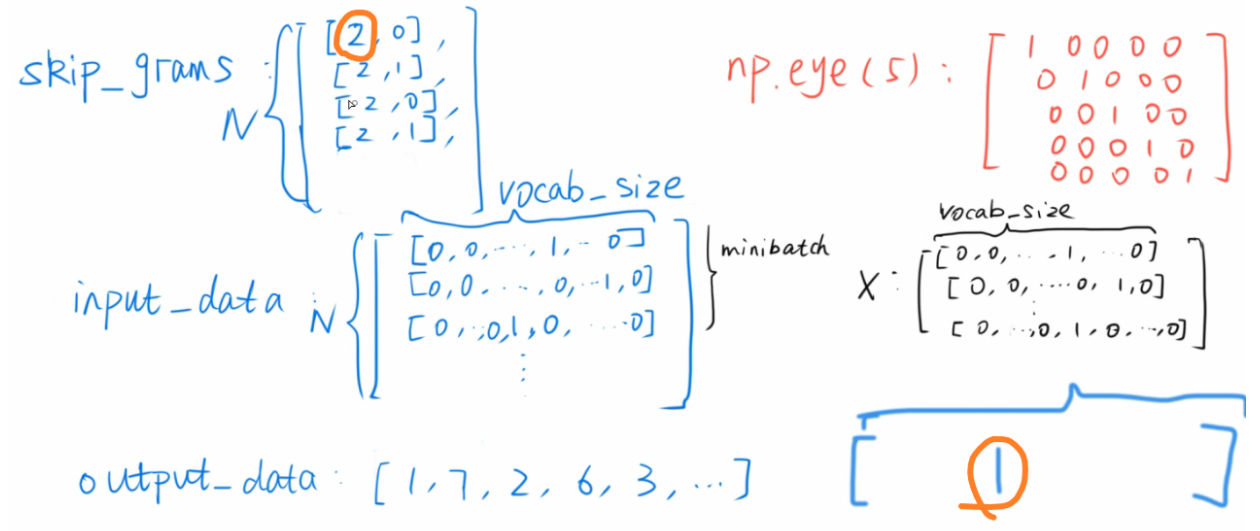 skip_grams : N [ [2, 0],
[2, 1],
[2, 0],
[2, 1],
]
np.eye(5) : [ 1 0 0 0 0
0 1 0 0 0
0 0 1 0 0
0 0 0 1 0
0 0 0 0 1 ]
vocab_size
input_data N [ [0, 0, ..., 1, .. 0]
[0, 0, ..., 0, ..1, 0]
[0, ..,0,1, 0, ....0]
⋮ ]
minibatch
vocab_size
X : [ [0, 0, ... 1, ...0]
[0, 0, ....0, 1, 0]
⋮
[0, ..,0, 1, 0, ..,0] ]
output_data : [1, 7, 2, 6, 3, ...]
[ 1 ]